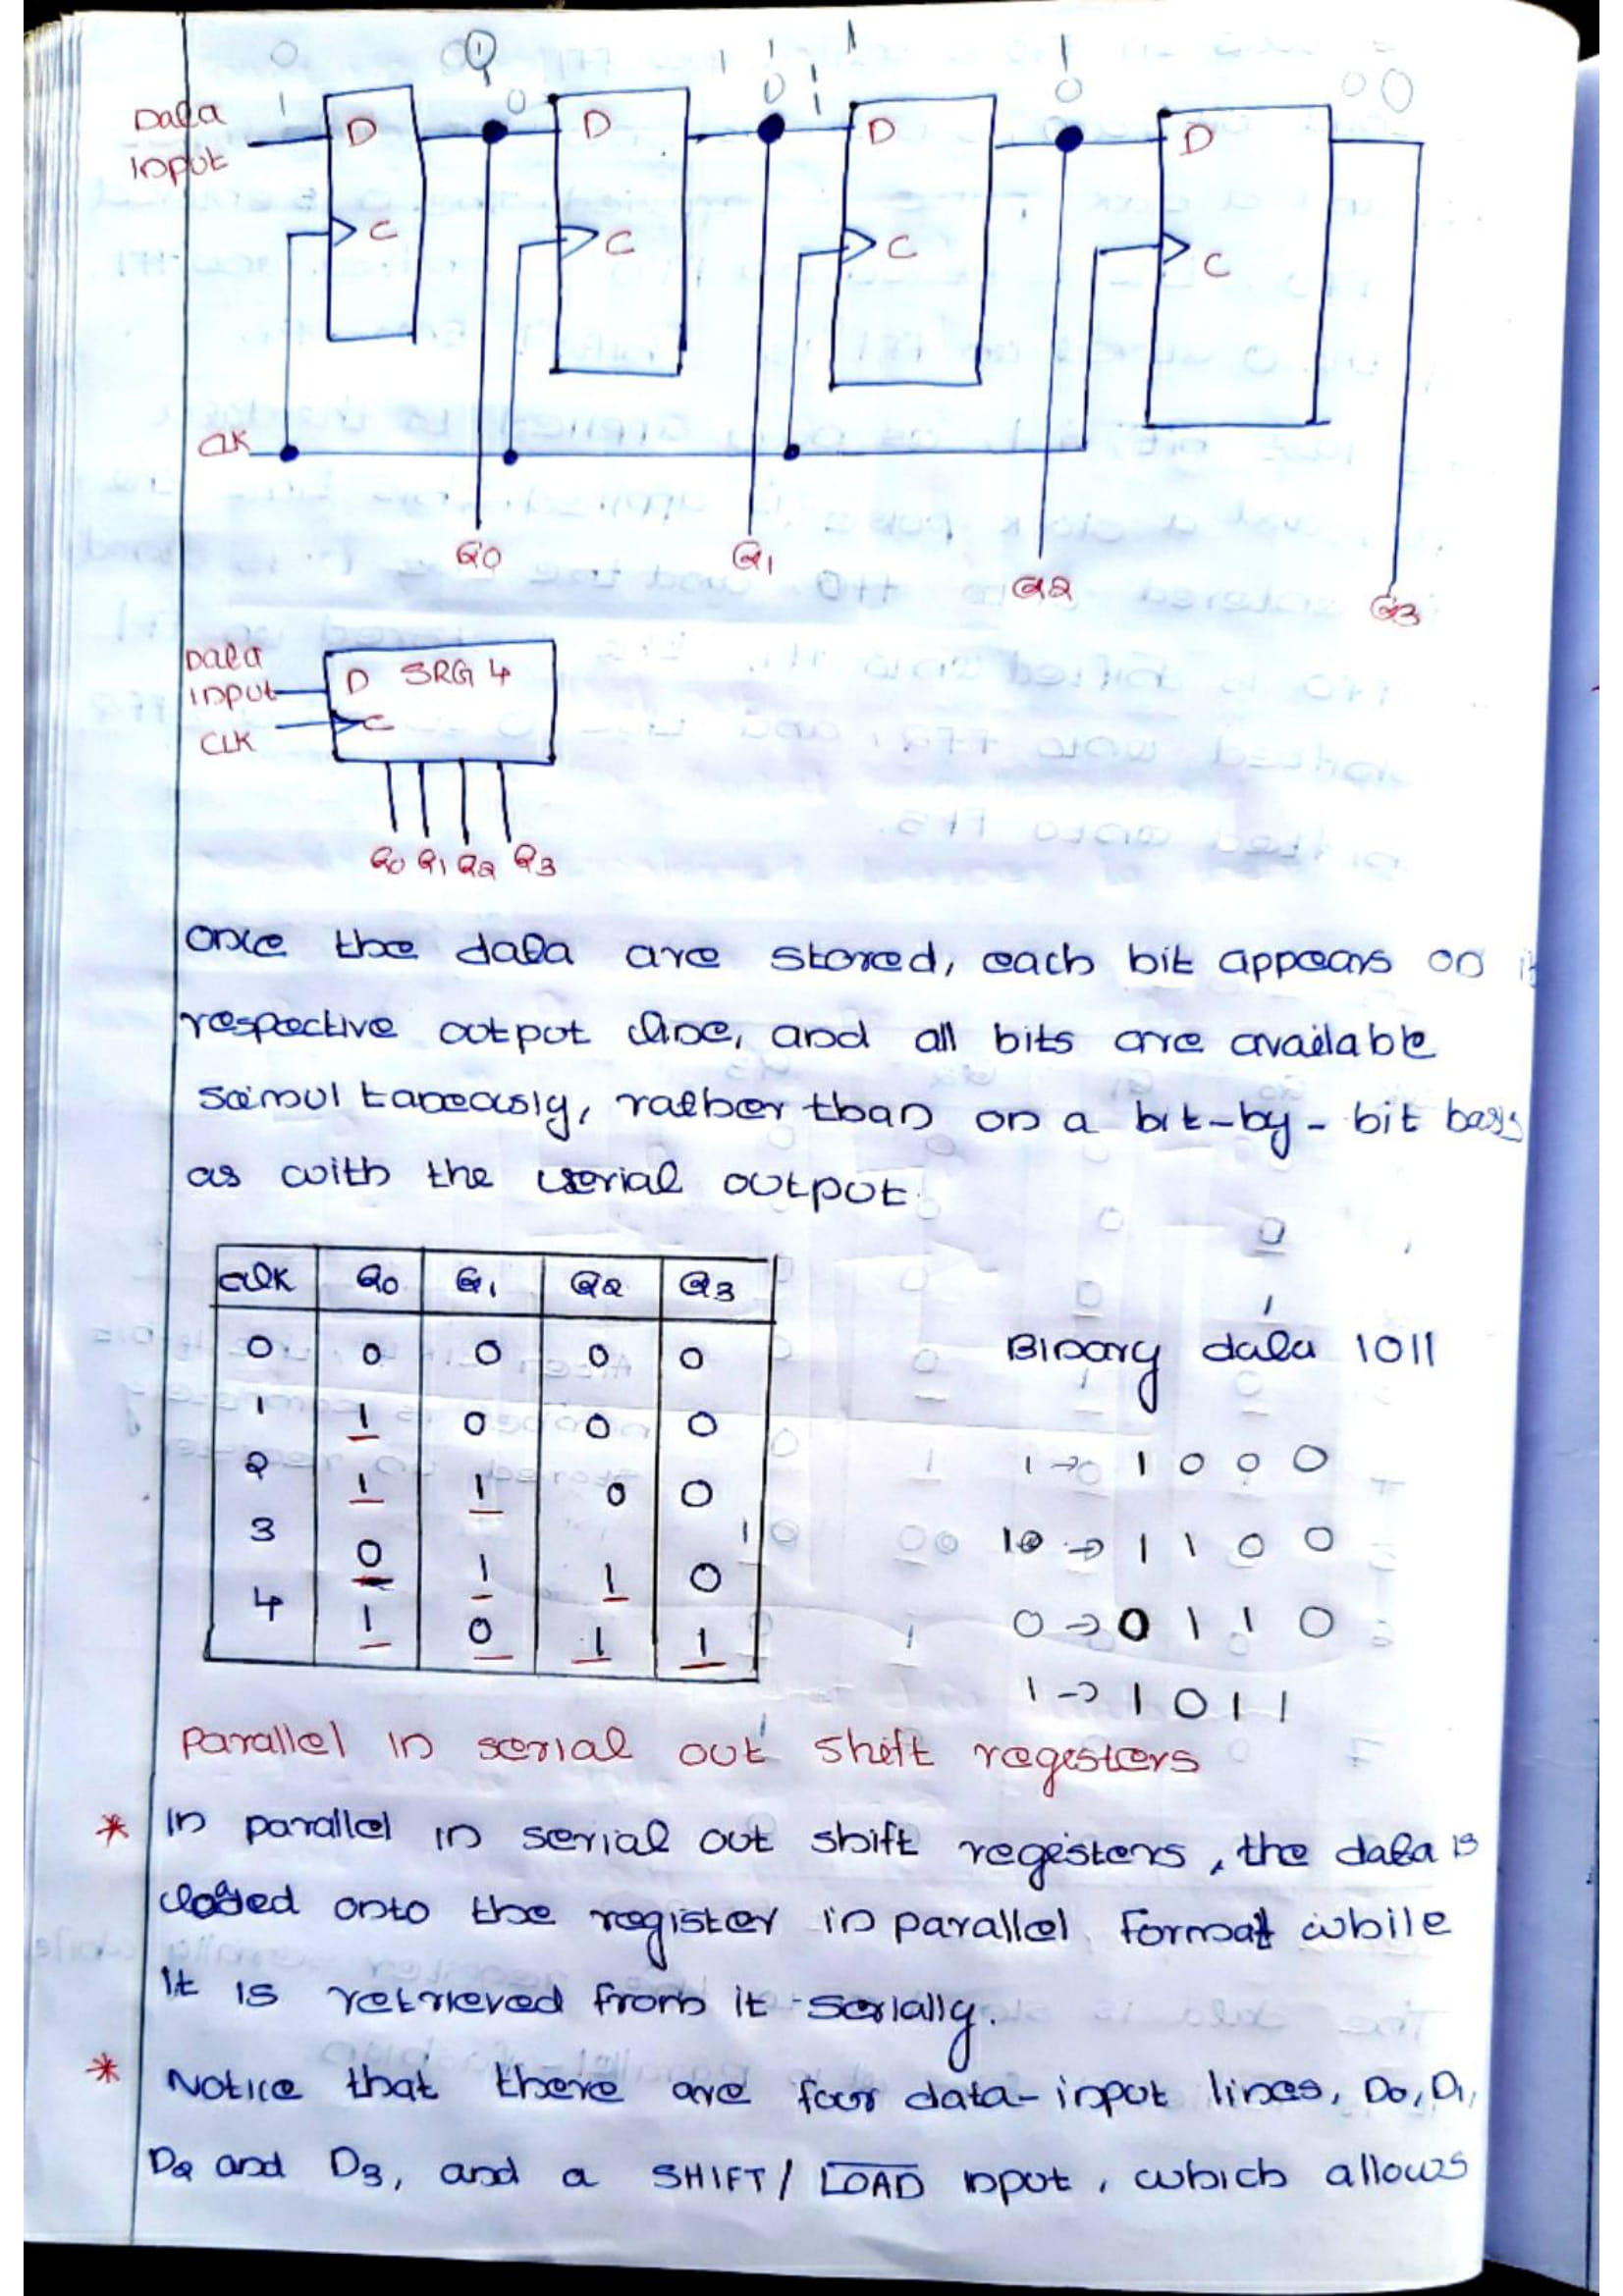 Data
Input
D
D
D
D
C
C
C
C
CLK
Q0
Q1
Q2
Q3
Data
Input
D SRG 4
C
CLK
Q0 Q1 Q2 Q3
Once the data are stored, each bit appears on
respective output line, and all bits are available
simultaneously, rather than on a bit-by-bit basis
as with the serial output.
CLK Q0 Q1 Q2 Q3
0 0 0 0 0
1 1 0 0 0
2 1 1 0 0
3 0 1 1 0
4 1 0 1 1
Binary data 1011
1 → 1 0 0 0
1 → 1 1 0 0
0 → 0 1 1 0
1 → 1 0 1 1
Parallel in serial out shift registers
* In parallel in serial out shift registers, the data is
loaded onto the register in parallel format while
it is retrieved from it serially.
* Notice that there are four data-input lines, D0, D1,
D2 and D3, and a SHIFT/L̅O̅A̅D̅ input, which allows